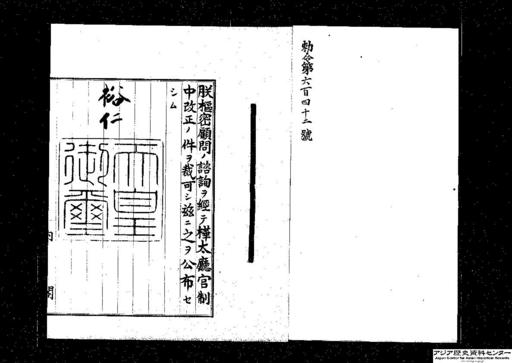 勅令第六百四十二號
朕樞密顧問ノ諮詢ヲ經テ樺太廳官制
中改正ノ件ヲ裁可シ茲ニ之ヲ公布セ
シム
裕仁
天皇
御璽
内 閣
アジア歴史資料センター
Japan Center for Asian Historical Records